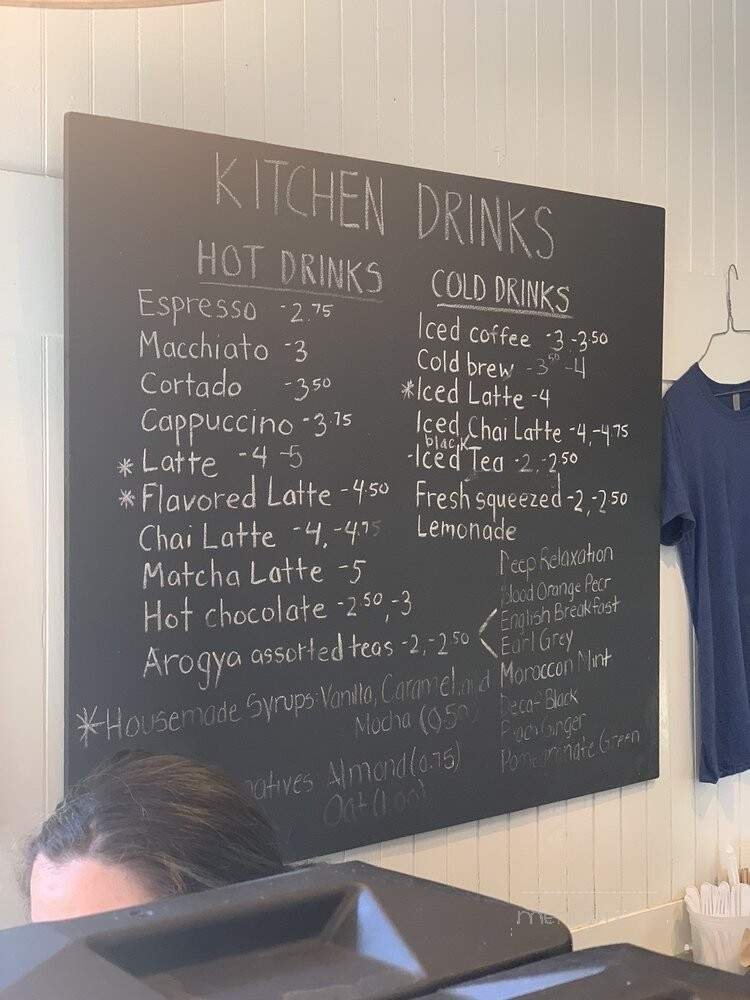 KITCHEN DRINKS
HOT DRINKS
Espresso -2.75
Macchiato -3
Cortado -3.50
Cappuccino -3.75
* Latte -4 -5
* Flavored Latte -4.50
Chai Latte -4, -4.75
Matcha Latte -5
Hot chocolate -2.50, -3
Arogya assorted teas -2, -2.50
*Housemade Syrups: Vanilla, Caramel, and
Mocha (0.50
Almond (0.75)
Oat (1.00)
COLD DRINKS
Iced coffee -3, -3.50
Cold brew -3.50 -4
*Iced Latte -4
Iced Chai Latte -4, -4.75
black
-Iced Tea -2, -2.50
Fresh squeezed -2, -2.50
Lemonade
Deep Relaxation
Blood Orange
English Breakfast
Earl Grey
Moroccan Mint
Decaf Black
Ginger
Pomegranate Green